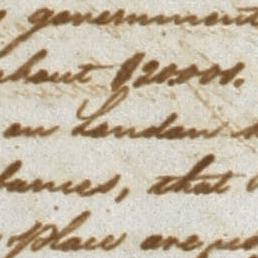 government
about $20.000.
on London
that
place are